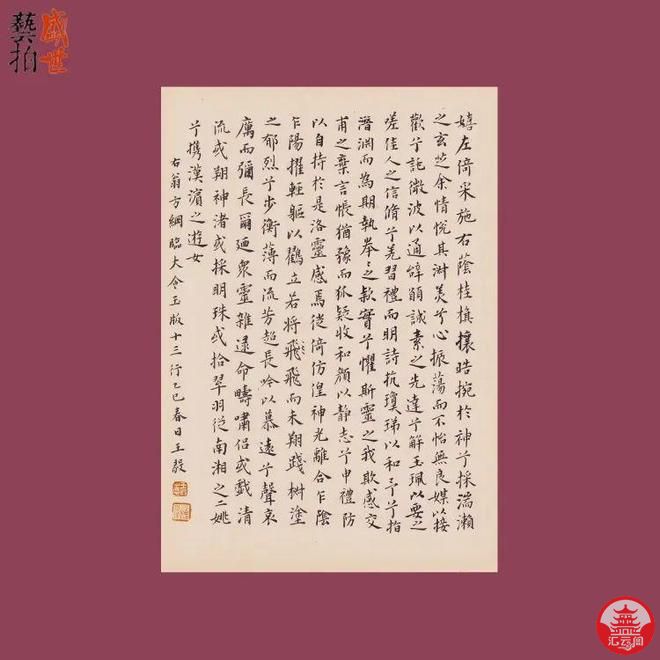 盛世
藝拍
嬉左倚采旄右蔭桂旗攘皓捥於神兮採湍瀨
之玄芝余情悅其淑美兮心振蕩而不怡無良媒以接
歡兮託微波以通辭願誠素之先達兮解玉珮以要之
嗟佳人之信脩兮羌習禮而明詩抗瓊珶以和予兮指
潛淵而為期執拳〻之款實兮懼斯靈之我欺感交
甫之棄言悵猶豫而狐疑收和顏以靜志兮申禮防
以自持於是洛靈感焉徙倚仿偟神光離合乍陰
乍陽擢輕軀以鶴立若將飛飛而未翔踐椒塗
之郁烈兮步衡薄而流芳超長吟以慕遠兮聲哀
厲而彌長爾迺衆靈雜遝命疇嘯侶或戲清
流或翔神渚或採明珠或拾翠羽從南湘之二姚
兮攜漢濱之遊女
右翁方綱臨大令玉版十三行乙巳春日王毅
汇云阁